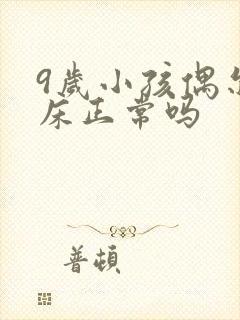 9歲小孩偶尔
床正常吗
普頓